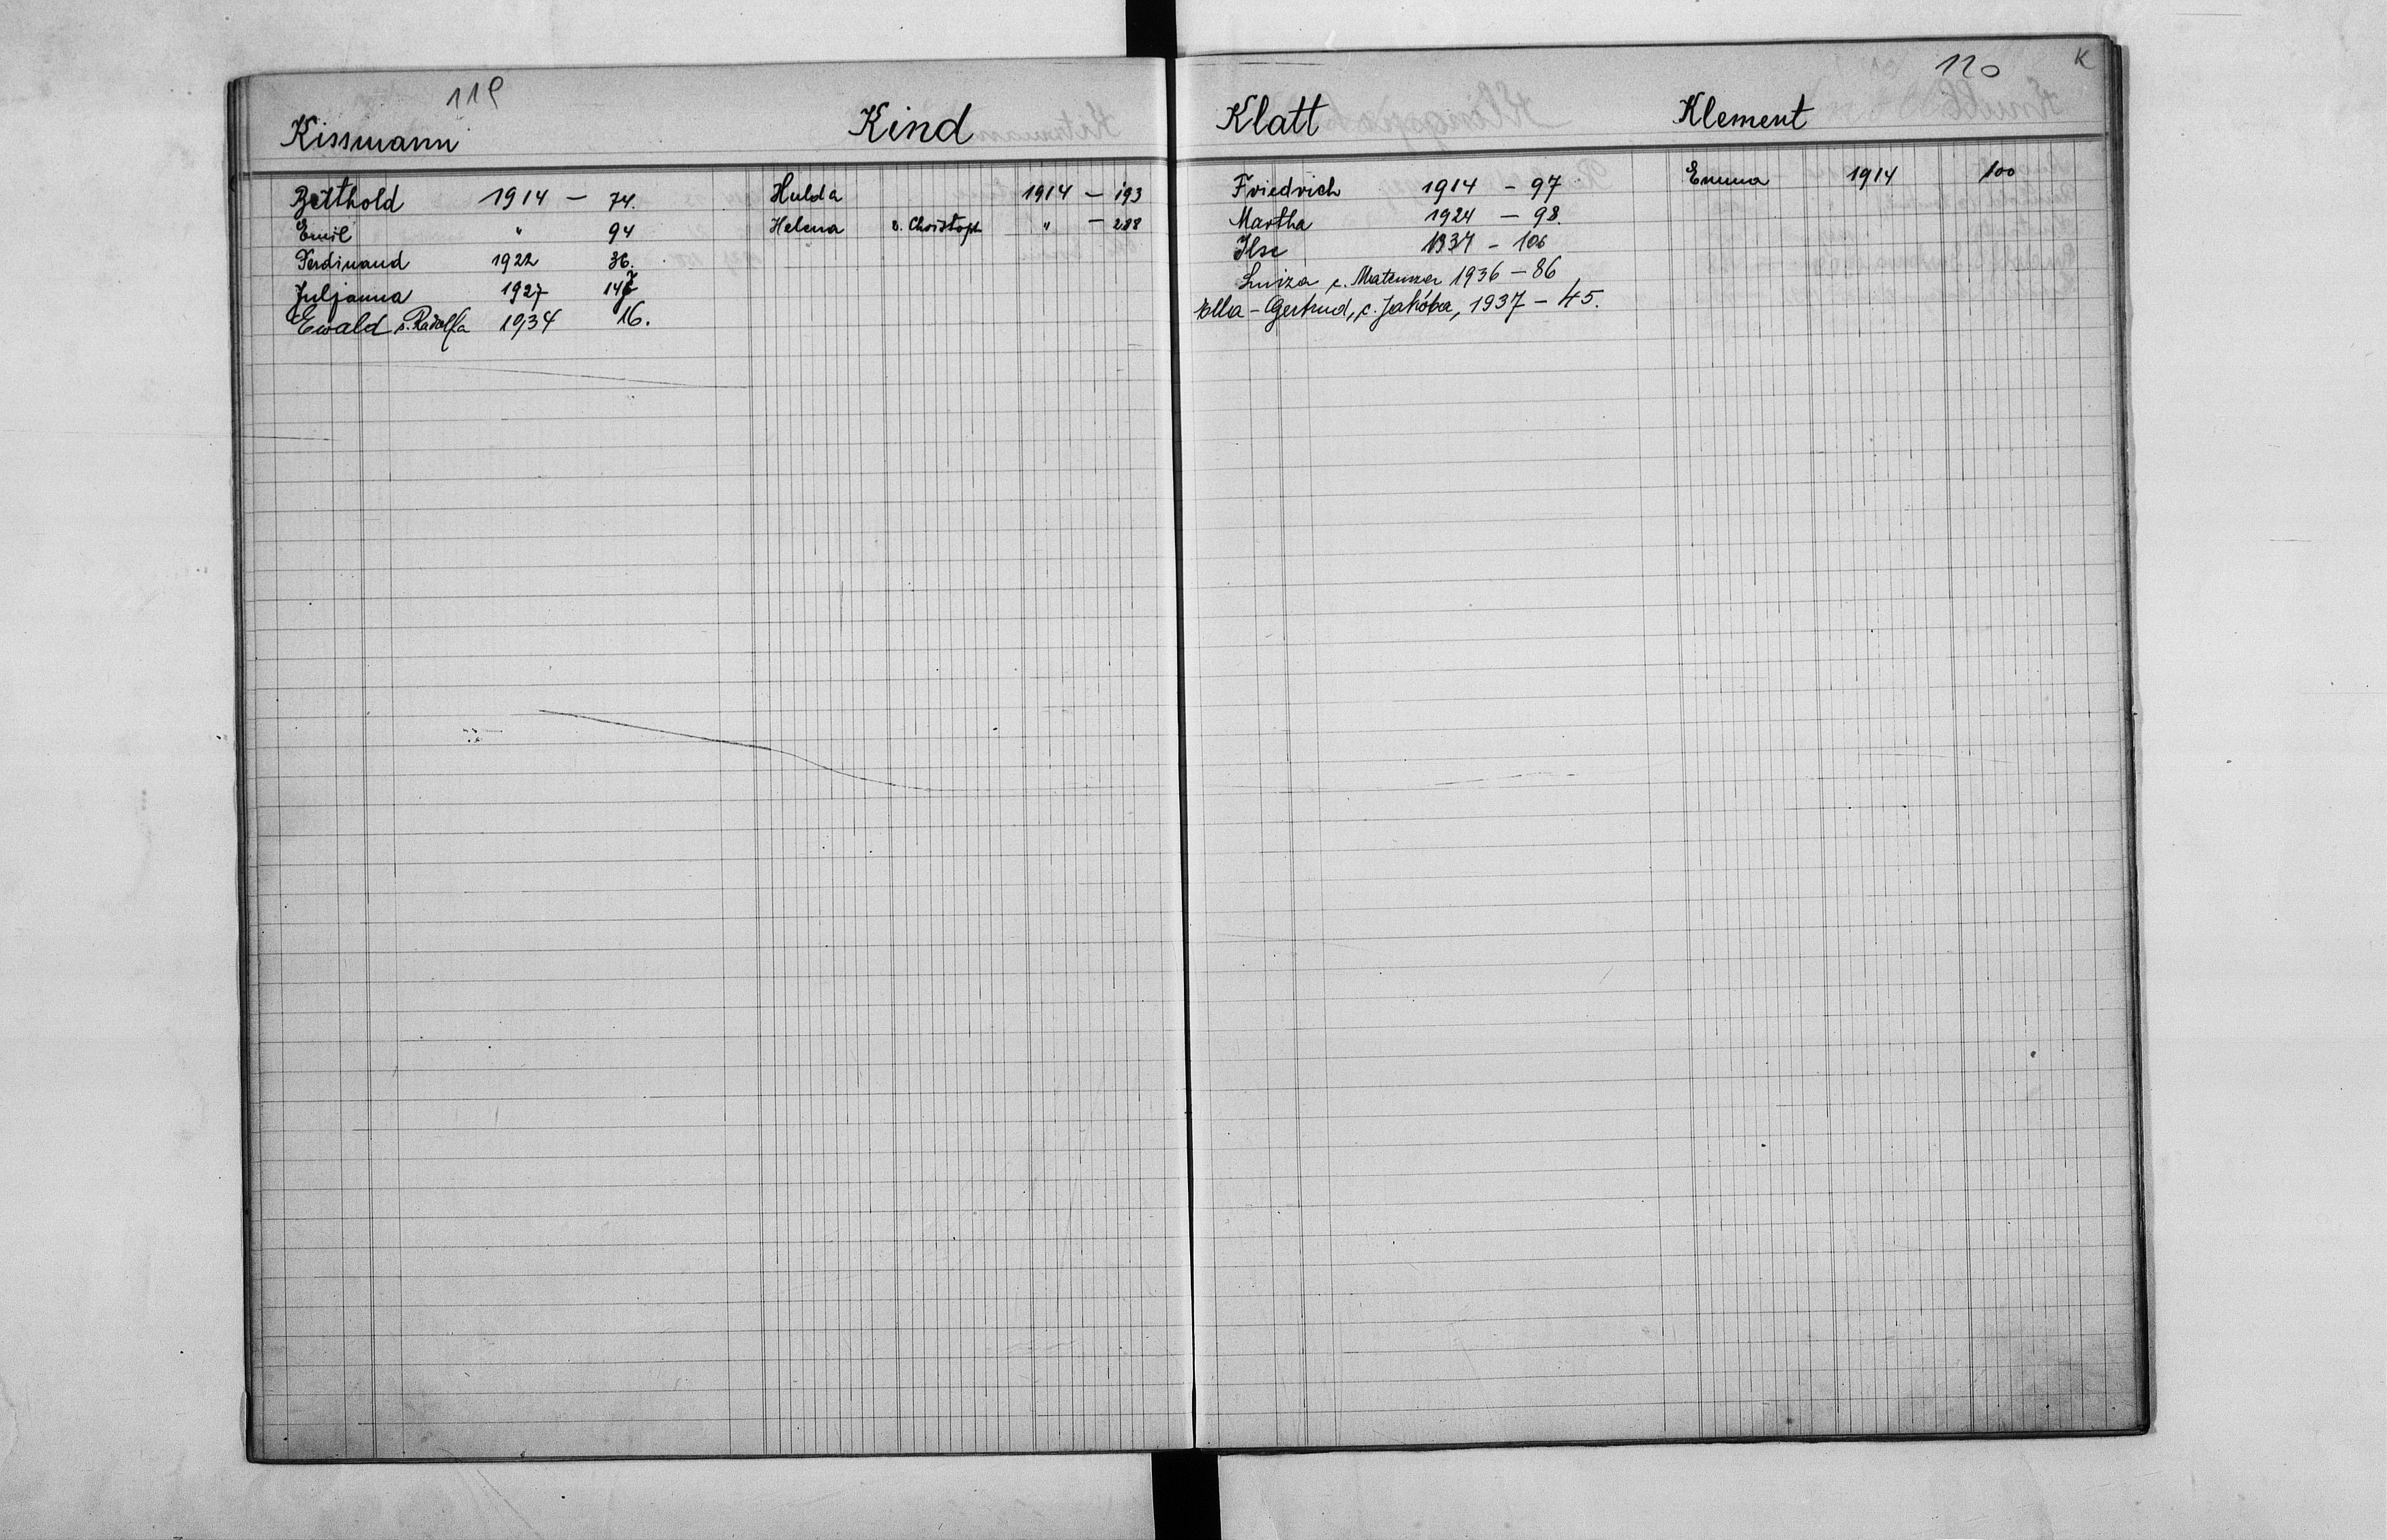 119
Kissmann
Berthold 1914 - 74.
Emil " 94
Ferdinand 1922 36.
Juljanna 1927 147
Ewald s. Rudolfa 1934 16.
Kind
Hulda 1914 - 193
Helena v. Christoph " - 288
120 K
Klatt
Friedrich 1914 - 97
Martha 1924 - 98.
Ilse 1934 - 106
Luiza c. Mateusza 1936 - 86
Ella - Gertrud, c. Jakóba, 1937 - 45.
Klement
Emma 1914 100